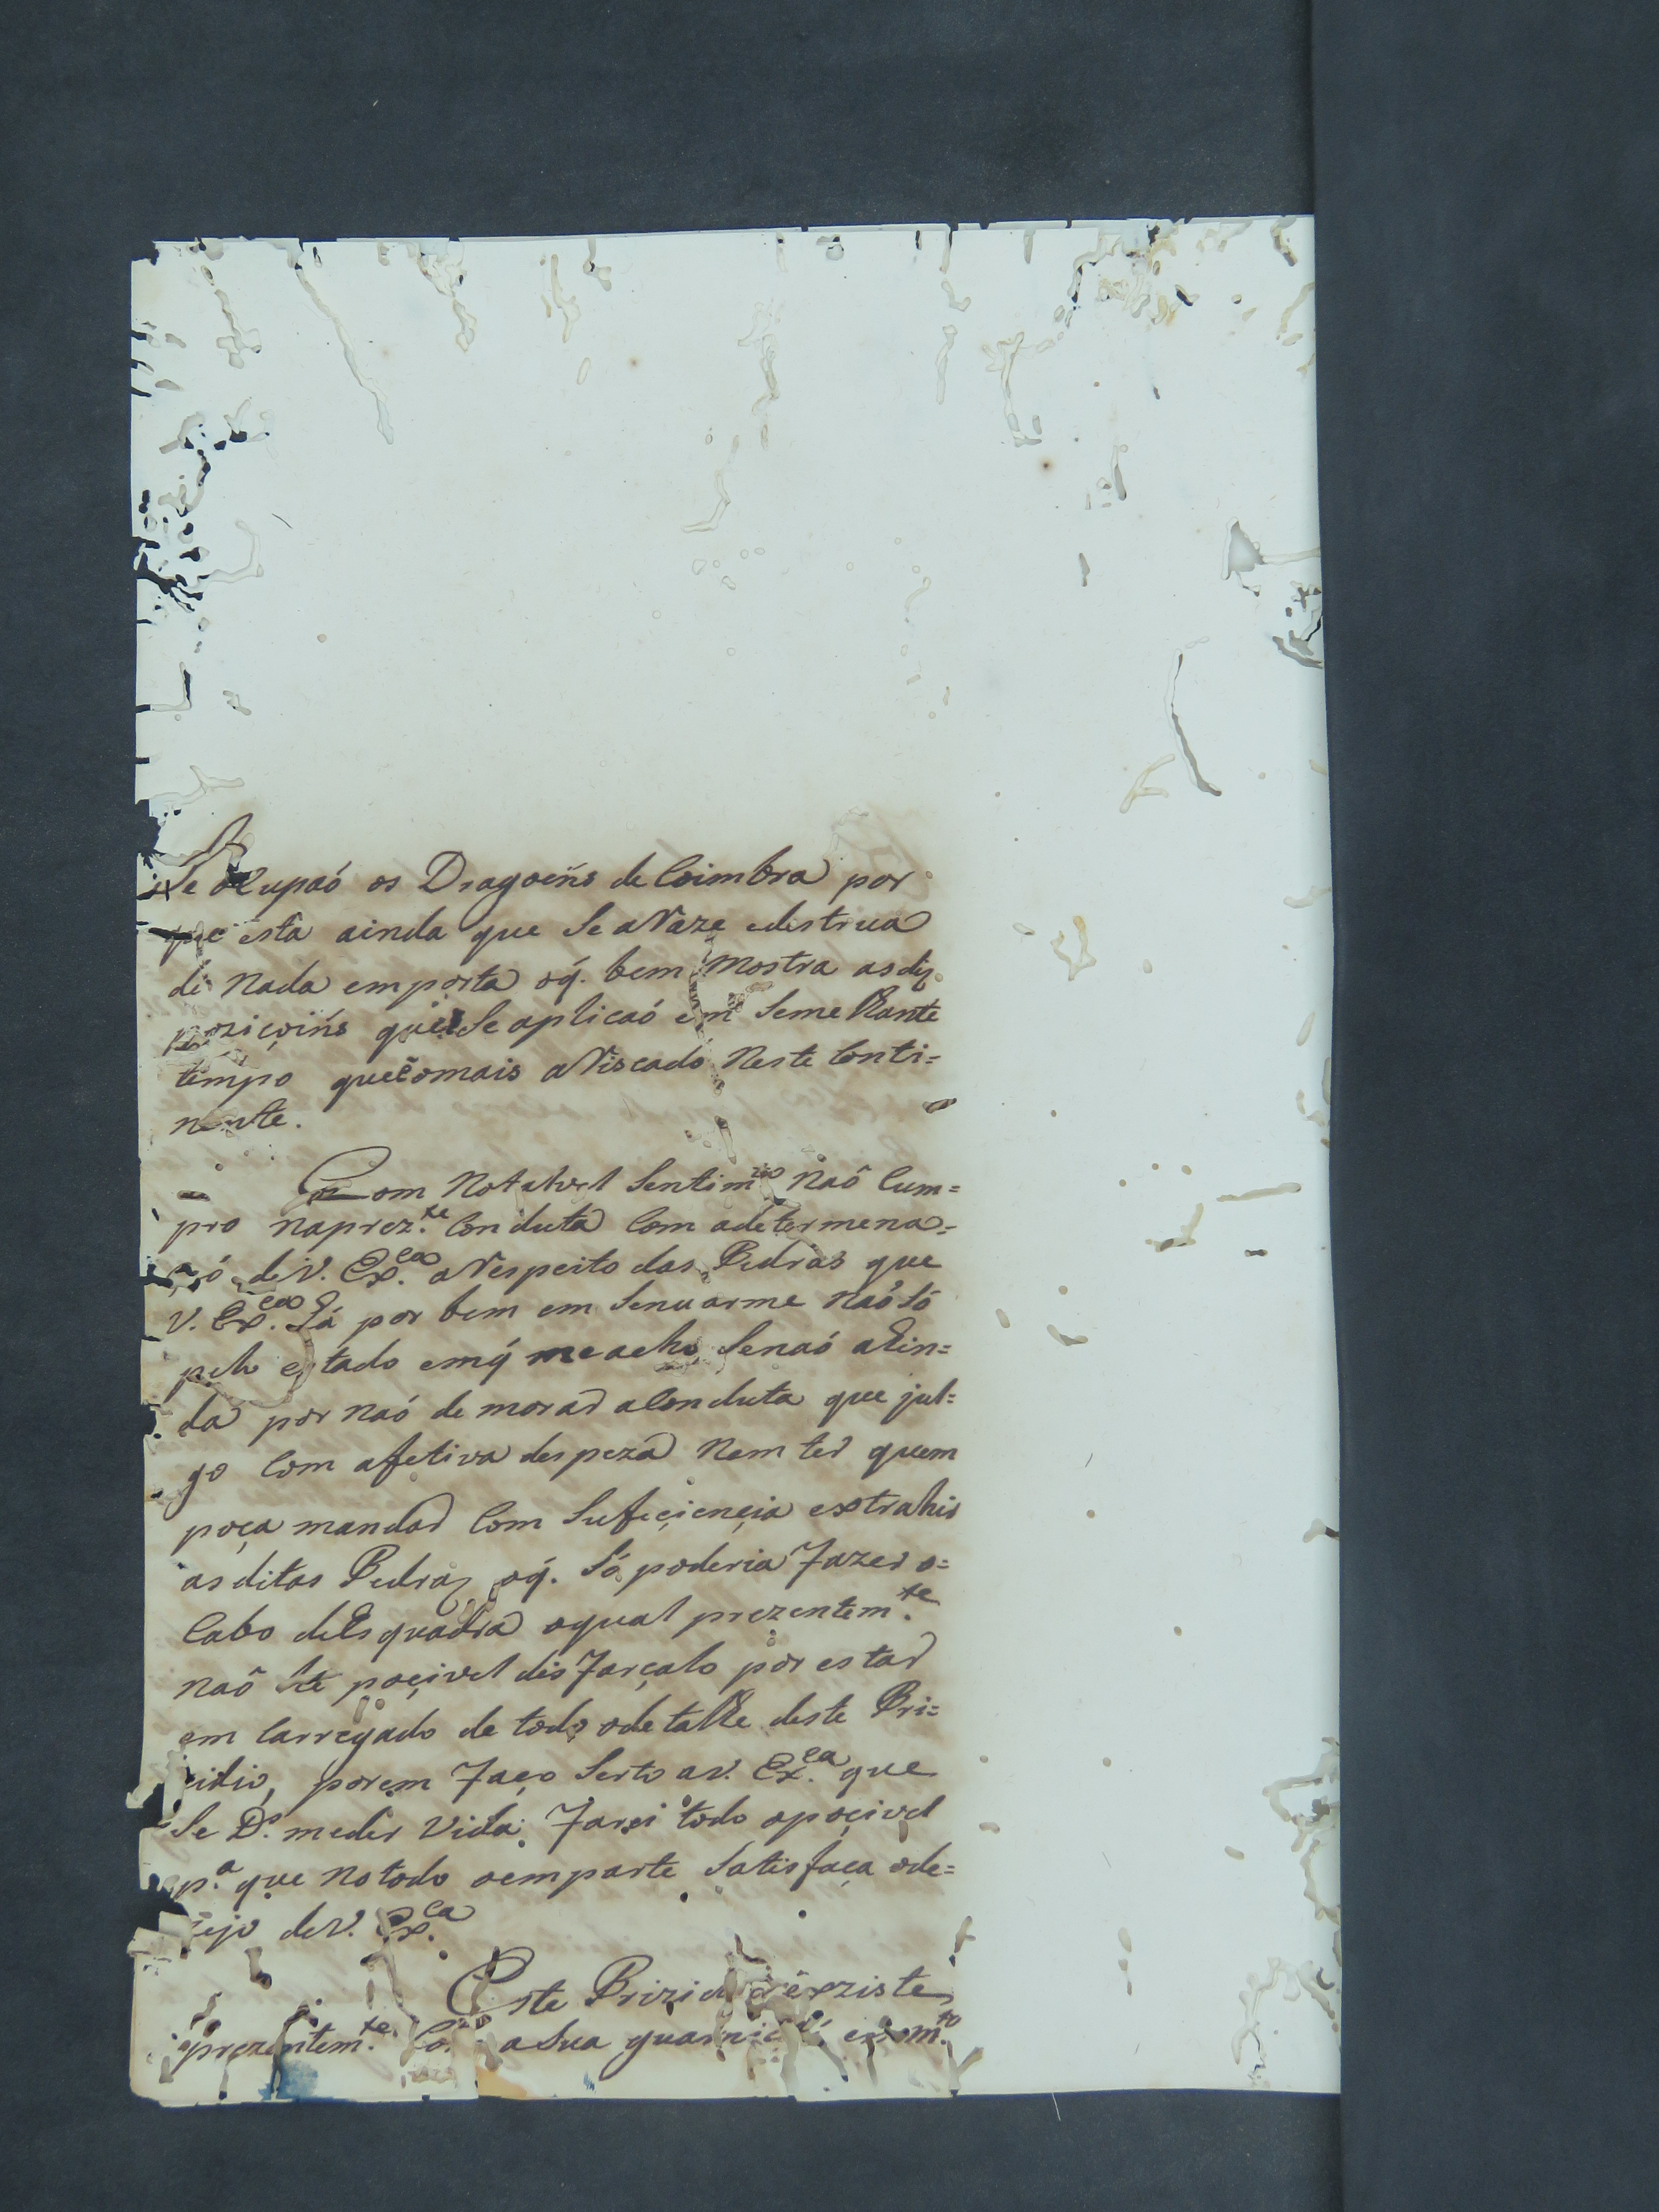 Se ocupaó os Dragoeñs de Coimbra por
que esta ainda que Se aRaze edistrua
de Nada emporta oq̃. bem mostra as dis
poziçoiñs que Se aplicaó em Semelhante
tempo que é omais aRiscado Neste Conti=
nente.
Com Notavel Sentim.to Naõ Cum=
pro naprez.te Conduta Com adetermena=
çaó de V. Ex.ca aRespeito das Pedras que
V. Ex.ca há por bem em Senuarme Naó Só
pelo estado emq̃ meacho Senaó ahin=
da por Naó demorar aConduta que jul=
go Com afetiva despeza Nem ter quem
poça mandar Com Suficiencia extrahir
as ditas Pedras oq̃. Só poderia Fazer o=
Cabo deEsquadra oqual prezentem.te
Naõ he poçivel disFarçalo por estar
em Carregado de todo odetalhe deste Pri=
zidio, porem Faço Serto aV. Ex.ca que
Se D.s meder Vida Farei todo opoçivel
p.a que Notodo oemparte Satisfaça ode=
zejo deV. Ex.ca
Este Prizidio exziste
prezentem.te Com aSua guarniçaó em m.to